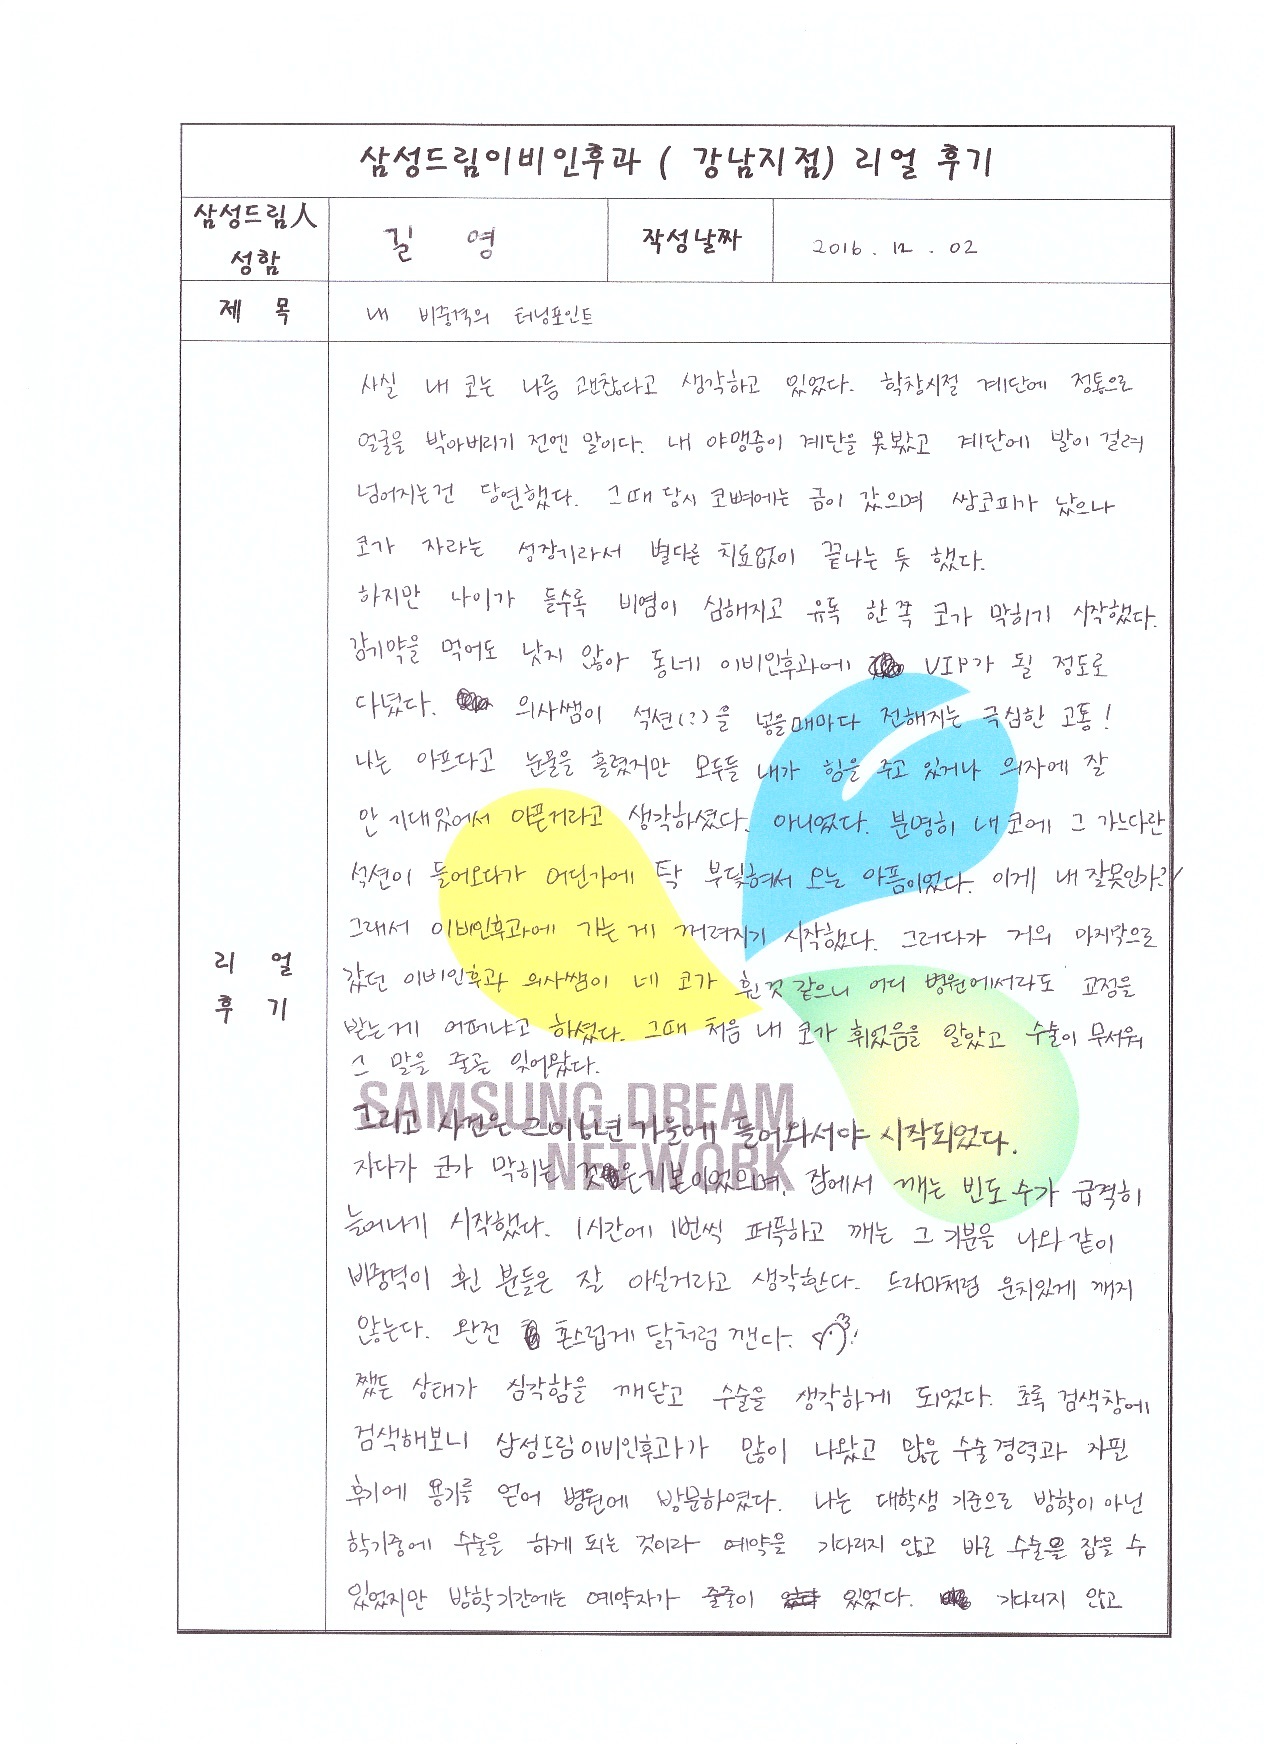 삼성드림이비인후과 ( 강남지점) 리얼 후기
삼성드림人 성함
길 영
작성날짜
2016. 12. 02
제 목
내 비중격의 터닝포인트
리 얼 후 기
사실 내 코는 나름 괜찮다고 생각하고 있었다. 학창시절 계단에 정통으로
얼굴을 박아버리기 전엔 말이다. 내 야맹증이 계단을 못봤고 계단에 발이 걸려
넘어지는건 당연했다. 그때 당시 코뼈에는 금이 갔으며 쌍코피가 났으나
코가 자라는 성장기라서 별다른 치료없이 끝나는 듯 했다.
하지만 나이가 들수록 비염이 심해지고 유독 한쪽 코가 막히기 시작했다.
감기약을 먹어도 낫지 않아 동네 이비인후과에 VIP가 될 정도로
다녔다. 의사쌤이 석션(?)을 넣을때마다 전해지는 극심한 고통!
나는 아프다고 눈물을 흘렸지만 모두들 내가 힘을 주고 있거나 의자에 잘
안 기대있어서 아픈거라고 생각하셨다. 아니었다. 분명히 내 코에 그 가느다란
석션이 들어오다가 어딘가에 탁 부딪혀서 오는 아픔이었다. 이게 내 잘못인가?
그래서 이비인후과에 가는 게 꺼려지기 시작했다. 그러다가 거의 마지막으로
갔던 이비인후과 의사쌤이 네 코가 휜것 같으니 어디 병원에서라도 교정을
받는게 어떠냐고 하셨다. 그때 처음 내 코가 휘었음을 알았고 수술이 무서워
그 말을 줄곧 잊어왔다.
SAMSUNG DREAM
그리고 사건은 2016년 가을에 들어와서야 시작되었다.
NETWORK
자다가 코가 막히는 것은 기본이었으며, 잠에서 깨는 빈도수가 급격히
늘어나기 시작했다. 1시간에 1번씩 퍼뜩하고 깨는 그 기분을 나와 같이
비중격이 휜 분들은 잘 아실거라고 생각한다. 드라마처럼 운치있게 깨지
않는다. 완전 촌스럽게 닭처럼 깬다.
쨌든 상태가 심각함을 깨닫고 수술을 생각하게 되었다. 초록 검색창에
검색해보니 삼성드림이비인후과가 많이 나왔고 많은 수술경력과 자필
후기에 용기를 얻어 병원에 방문하였다. 나는 대학생 기준으로 방학이 아닌
학기중에 수술을 하게 되는 것이라 예약을 기다리지 않고 바로 수술을 잡을 수
있었지만 방학기간에는 예약자가 줄줄이 있었다. 기다리지 않고